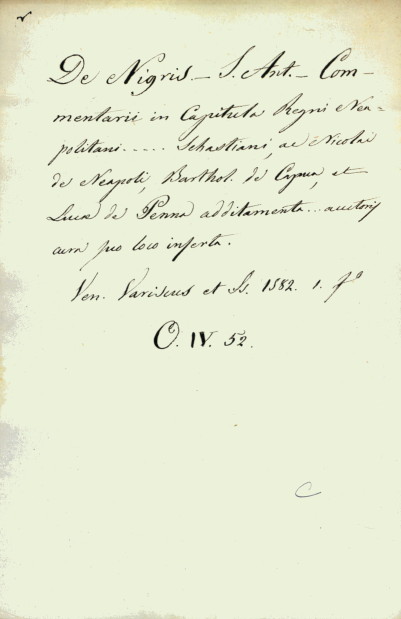 De Nigris — S. Ant. — Com-
mentarii in Capitula Regni Nea-
politani..... Sebastiani, ac Nicolai
de Neapoli, Barthol. de Capua, et
Lucæ de Penna additamenta... auctoris
cura pro loco inserta.
Ven. Variscus et Ss. 1582. 1. fº
O. IV. 52.
C